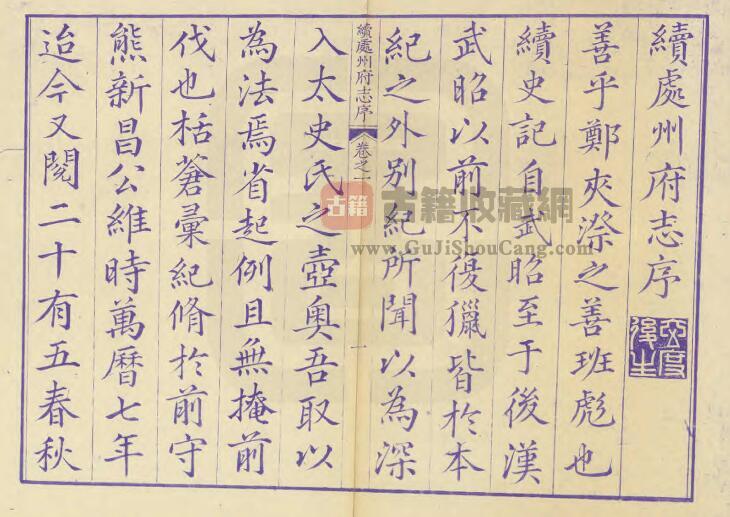 續處州府志序
善乎鄭夾漈之善班彪也
續史記自武昭至于後漢
武昭以前不復獵皆於本
紀之外別紀所聞以為深
續處州府志序 卷之一
一
入太史氏之壺奧吾取以
為法焉省起例且無掩前
伐也栝蒼彙紀脩於前守
熊新昌公維時萬曆七年
迨今又閱二十有五春秋
古籍 古籍收藏網
www.GuJiShouCang.com